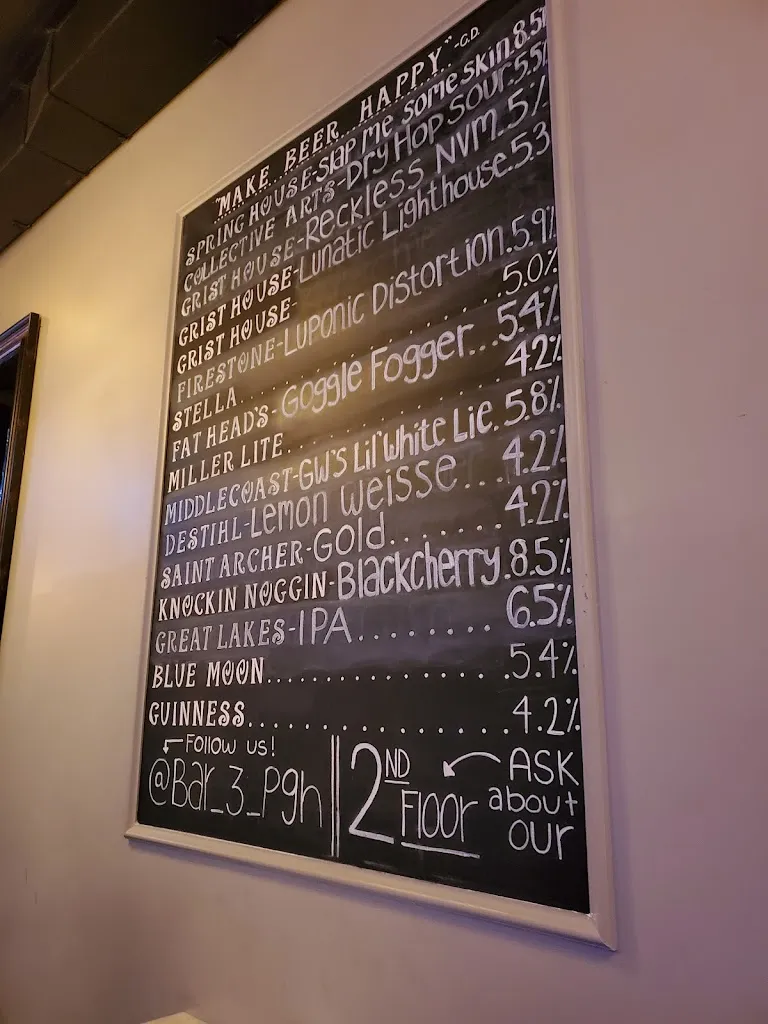 "MAKE BEER... HAPPY" -G.D.
SPRING HOUSE-Slap me some skin.8.5%
COLLECTIVE ARTS-Dry Hop Sour.5.5%
GRIST HOUSE-Reckless NVM.5%
GRIST HOUSE-Lunatic Lighthouse.5.3
GRIST HOUSE-
FIRESTONE-Luponic Distortion.5.9%
STELLA..........5.0%
FAT HEAD'S-Goggle Fogger...5.4%
MILLER LITE..........4.2%
MIDDLECOAST-GW'S Lil' White Lie.5.8%
DESTIHL-Lemon Weisse...4.2%
SAINT ARCHER-Gold.......4.2%
KNOCKIN NOGGIN-Blackcherry.8.5%
GREAT LAKES-IPA........6.5%
BLUE MOON..............5.4%
GUINNESS...............4.2%
Follow us!
@Bar_3_Pgh
2ND Floor
ASK about our